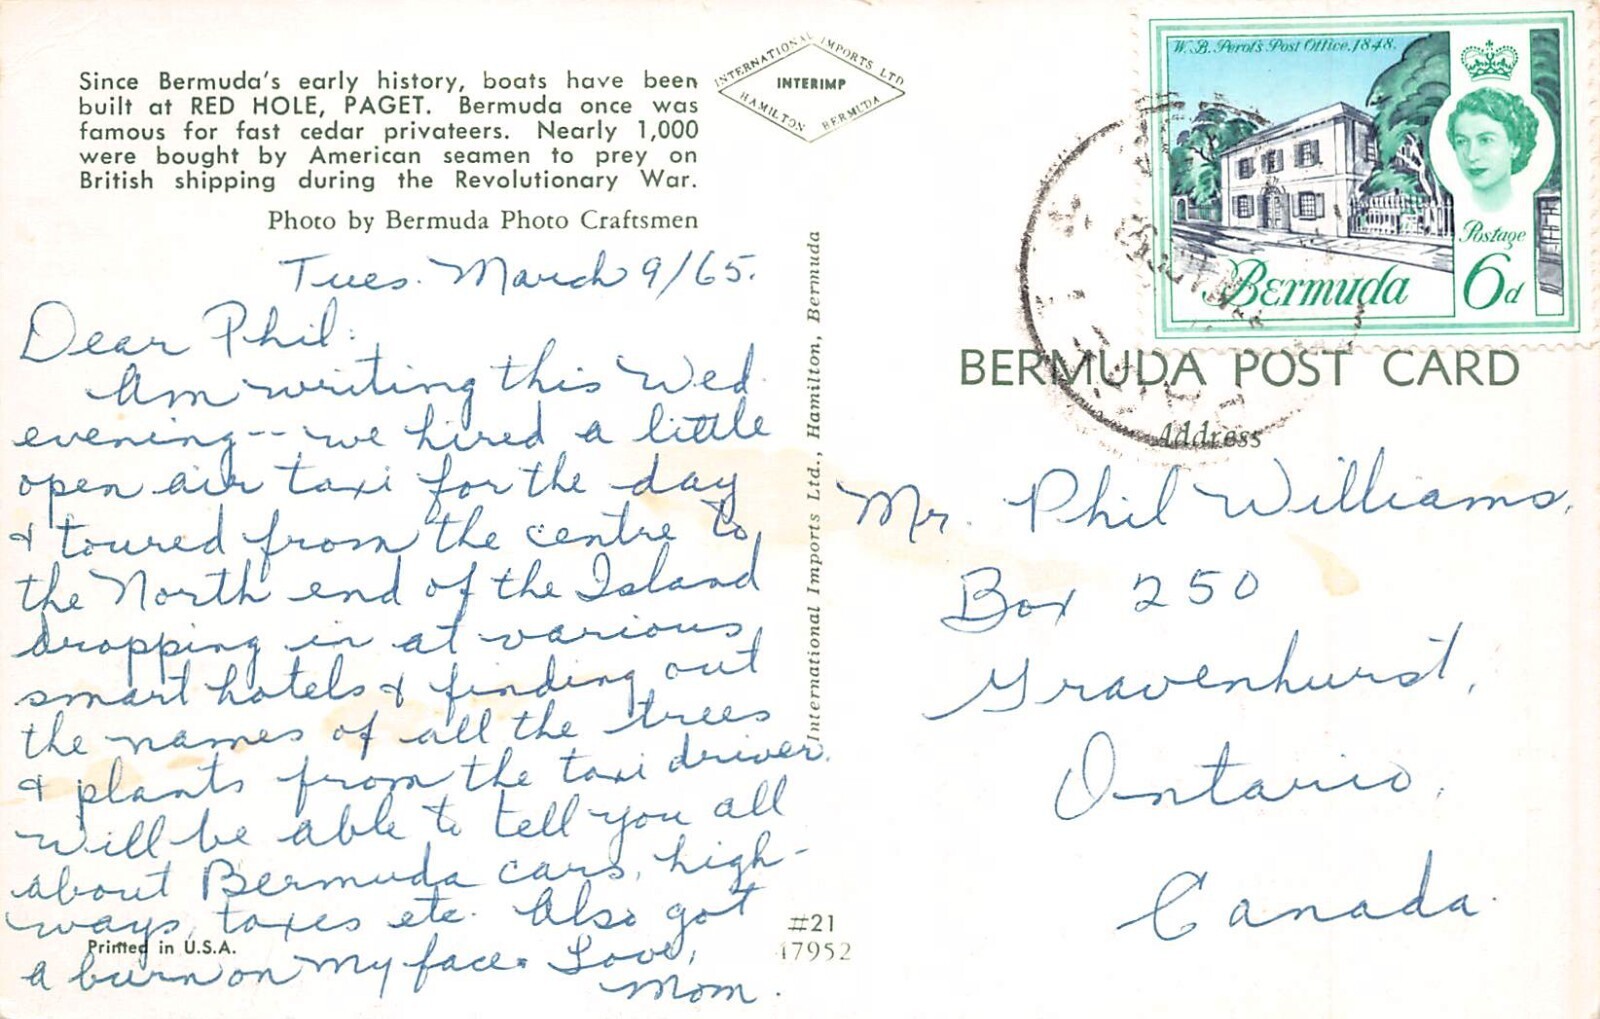 Since Bermuda's early history, boats have been
built at RED HOLE, PAGET. Bermuda once was
famous for fast cedar privateers. Nearly 1,000
were bought by American seamen to prey on
British shipping during the Revolutionary War.
Photo by Bermuda Photo Craftsmen
Tues. March 9/65.
Dear Phil:
Am writing this Wed.
evening-- we hired a little
open air taxi for the day
& toured from the centre to
the North end of the Island
dropping in at various
smart hotels & finding out
the names of all the trees
& plants from the taxi driver.
Will be able to tell you all
about Bermuda cars, high-
ways, taxes etc. Also got
a burn on my face. Love,
Mom.
Printed in U.S.A.
INTERNATIONAL IMPORTS LTD
INTERIMP
HAMILTON BERMUDA
International Imports Ltd., Hamilton, Bermuda
#21
47952
W. B. Perot's Post Office, 1848.
Postage
6d
Bermuda
BERMUDA POST CARD
Address
Mr. Phil Williams,
Box 250
Gravenhurst,
Ontario,
Canada.